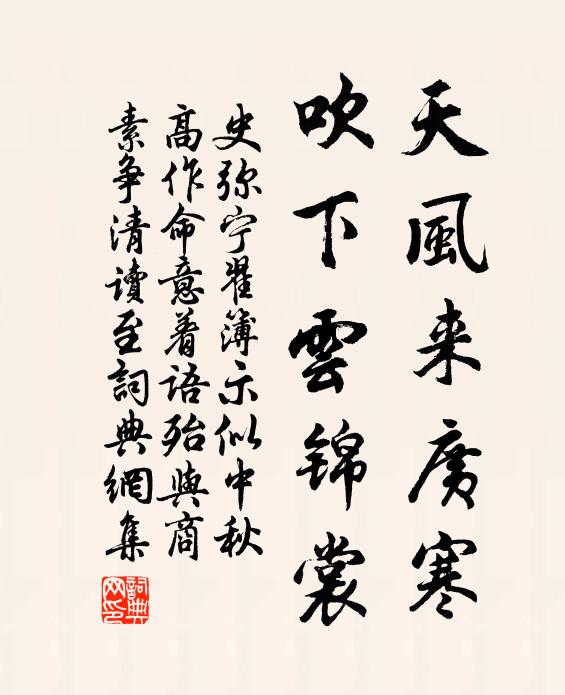 天風来廣寒
吹下雲錦裳
史弥宁翟簿示似中秋
高作命意着语殆與商
素争清讀至詞典網集
詞典网印